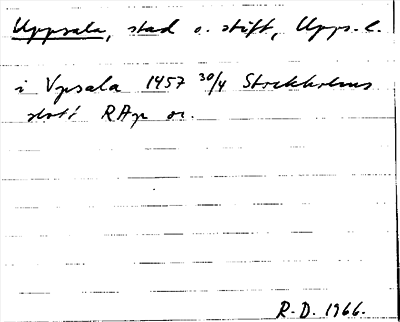 Uppsala, stad o. stift, Upps. l.
i Vpsala 1457 30/4 Stockholms
slott RAp or.
R.D. 1966.